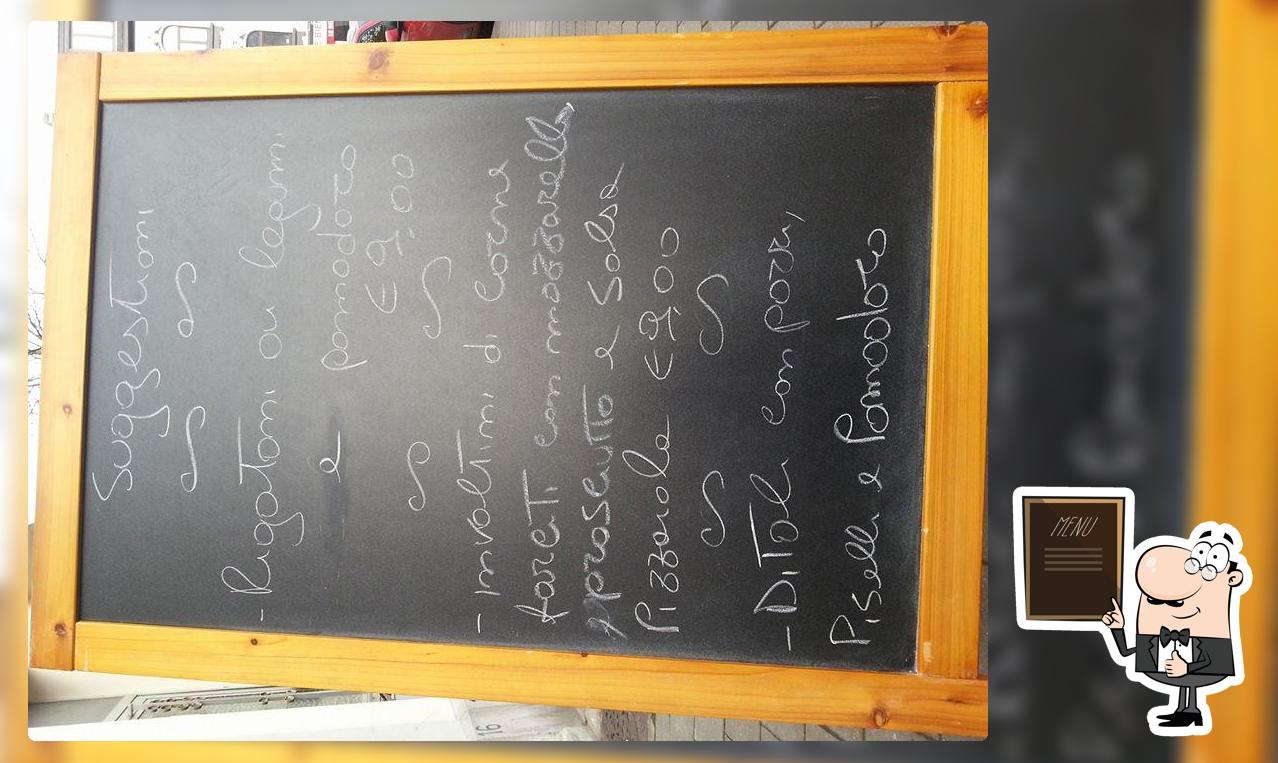 Suggestioni
- Rigatoni au legumi
e pomodoro
€9,00
- involtini di carne
farciti con mozzarella,
prosciutto e Salsa
Pizzaiola €9,00
- Ditali con porri,
Piselli e Pomodoro
MENU
16